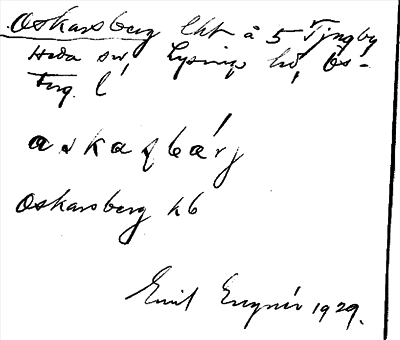 Oskarsberg lht å 5 Tjngby
Heda sn, Lysings hd, Ös-
terg. l
a s k a ʃ b a ́ r j
Oskarsberg kb
Emil 1929.